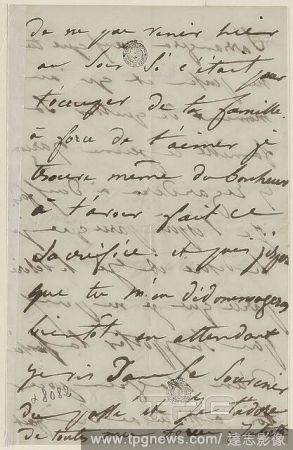 de ne pas venir hier
au soir si c'était pour
t'occuper de ta famille.
à force de t'aimer je
trouve même du bonheur
à t'avoir fait ce
sacrifice. et puis j'espère
que tu m'en dédommageras
bientôt. en attendant
je vis dans le souvenir
du passé et je t'adore
de toutes mes forces. Juliette
8082
TPG
www.tpgnews.com/ 達志影像